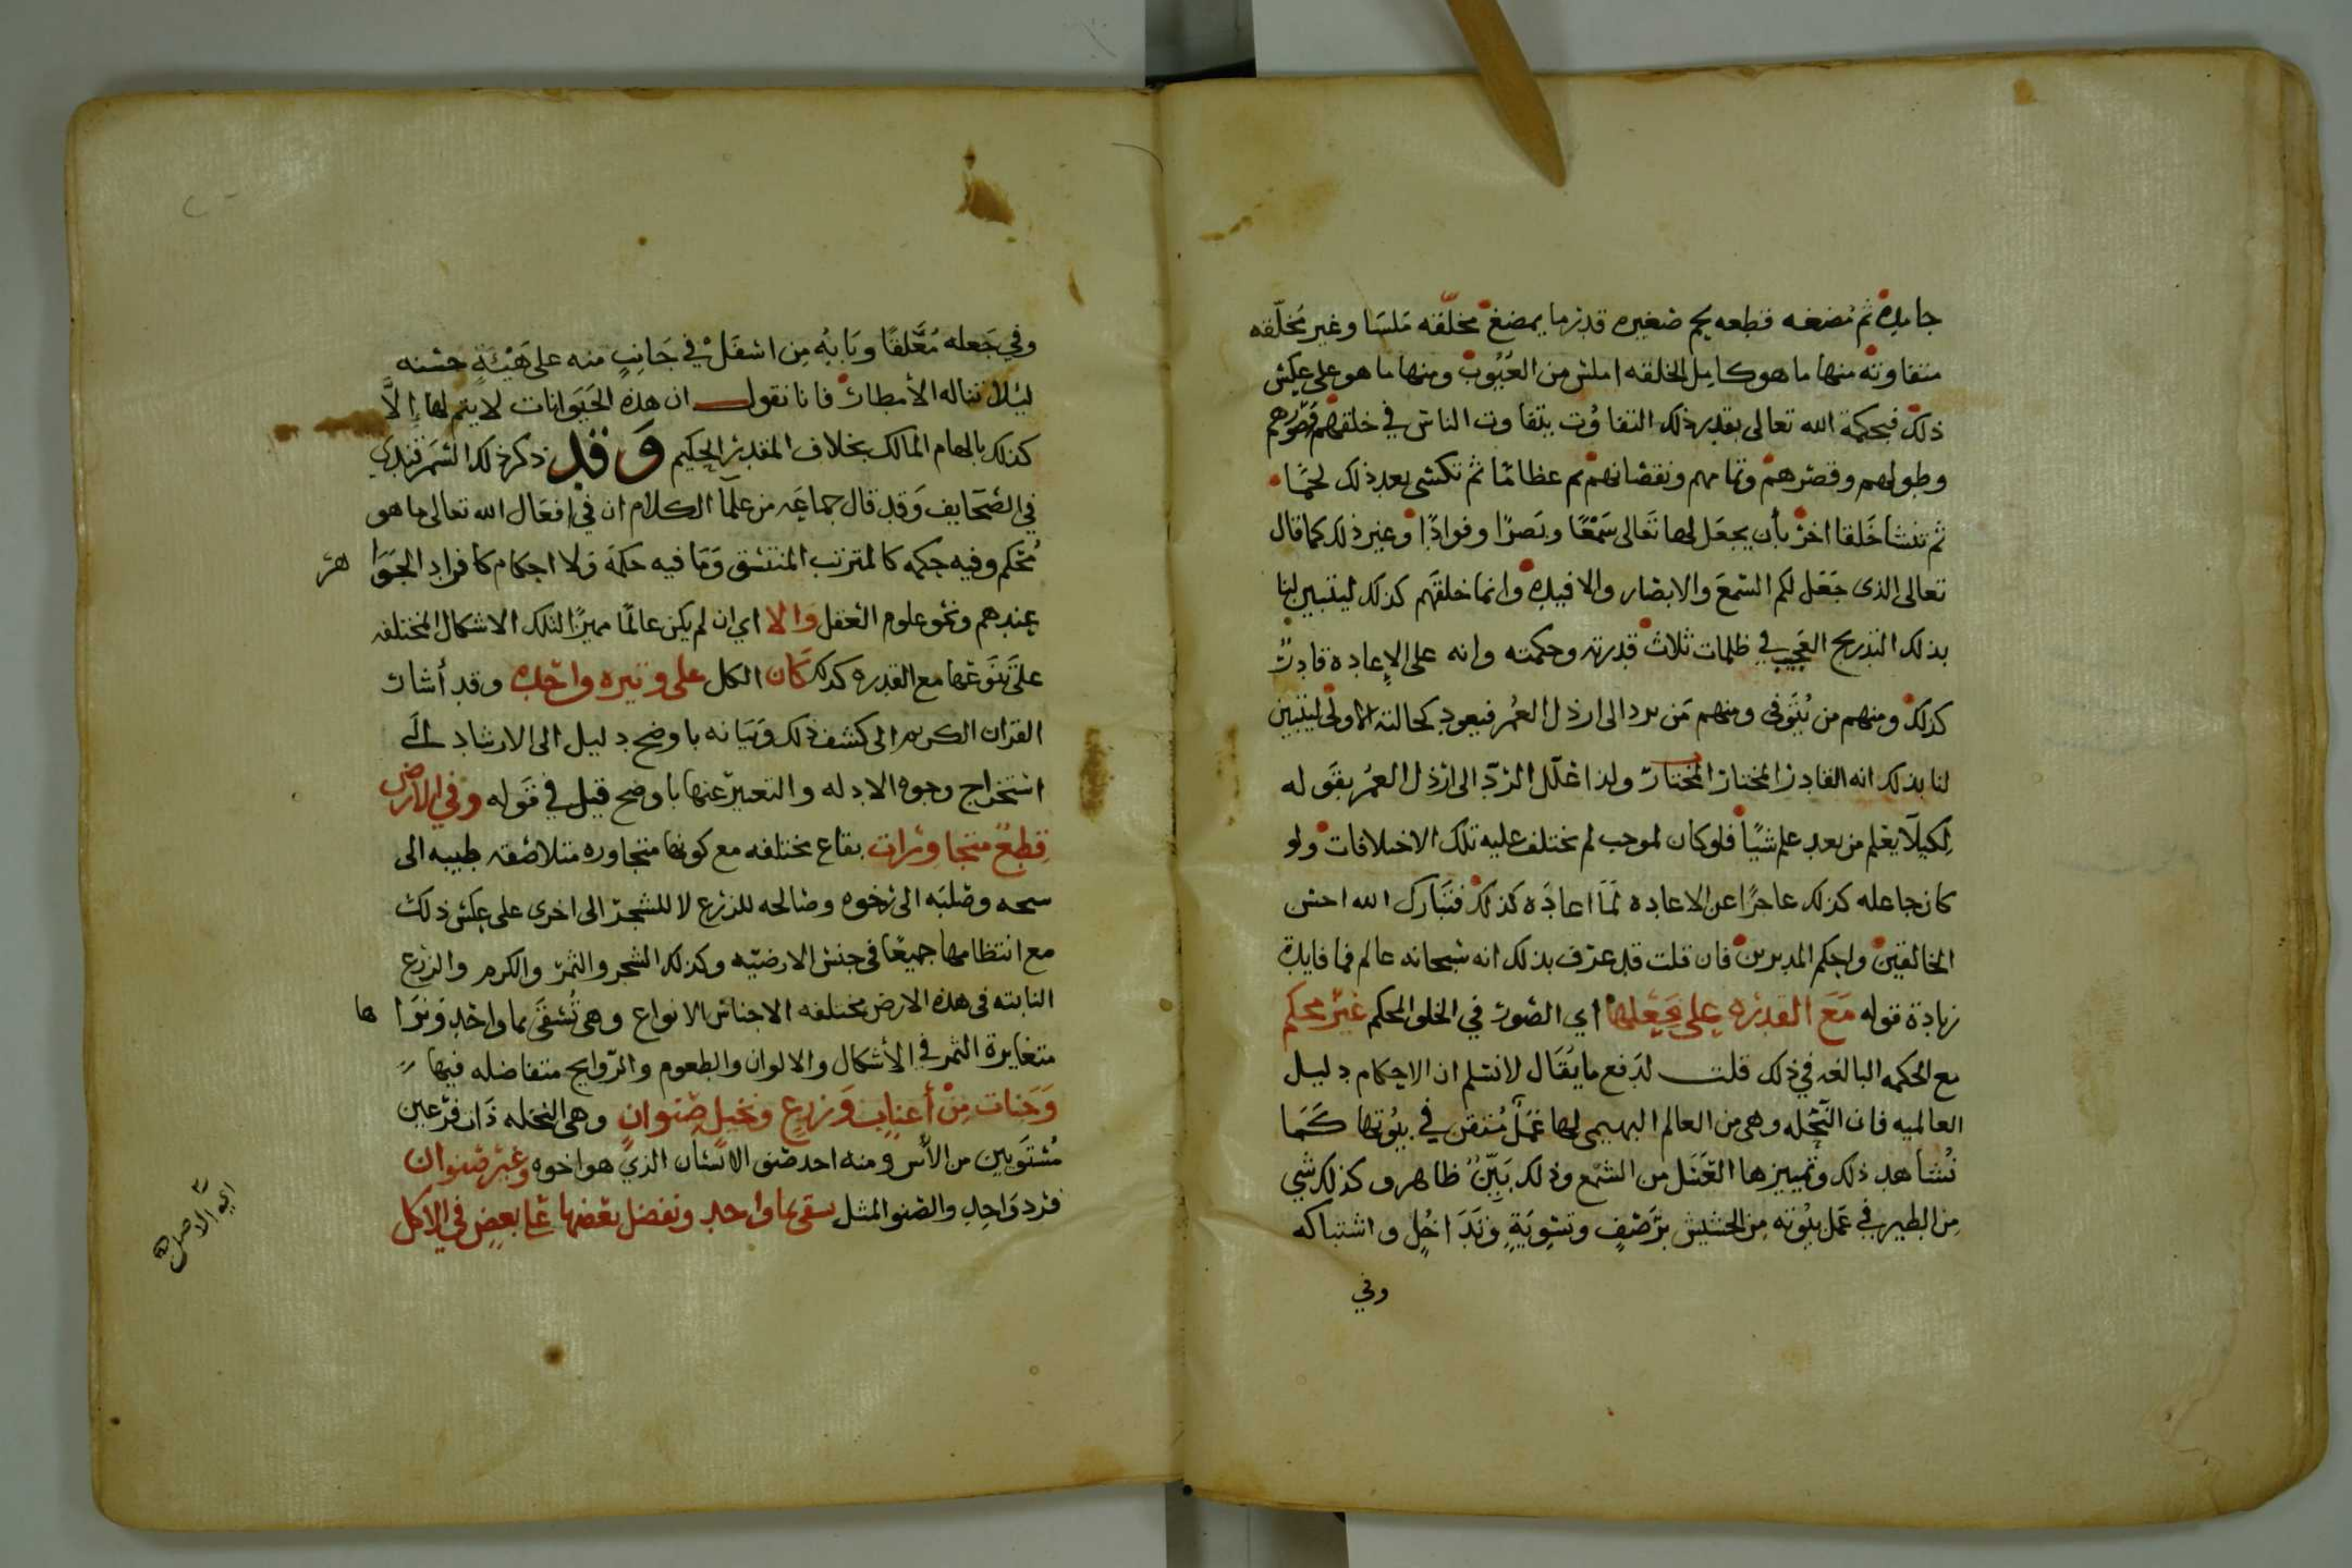 جامده ثم مضغه قطعه لحم صغيره قدر ما يمضغ مخلّقه ملسا وغير مخلّقه
متفاوته منها ما هو كامل الخلقه املس من العُيُوب ومنها ما هو على عكس
ذلك فبحكمة الله تعالى بقدر ذلك التفاوُت يتفاوت الناس في خلقهم وصورهم
وطولهم وقصرهم وتمامهم ونقصانهم ثم عظامًا ثم تكسى بعد ذلك لحمًا
ثم تنشا خَلقا اخر بأن يجعَل لها تعَالى سَمْعًا وبَصرًا وفوادًا وغير ذلك كما قال
تعالى الذى جَعَل لكم السّمعَ والابصار والافيده وانما خلقهم كذلك ليتبين لنا
بذلك التدريج العَجيب في ظلمات ثلاث قدرته وحكمته وانه على الإعاده قادرٌ
كذلك ومنهم من يُتَوفى ومنهم مَن يرد الى ارذل العُمر فيعود كحالته الاولى ليتبين
لنا بذلك انه القادر المختار المختار ولذا علّل الردّ الى ارذل العمُر بقَوله
لكيلا يعْلم من بعد علم شيًا فلو كان لموجب لم يختلف عليه تلك الاختلافات ولو
كان جاعله كذلك عاجزًا عن الاعاده لمَا اعادَه كذلك فتبَارك الله احسن
الخالقين واحكم المدبرين فان قلت قد عرف بذلك انه سُبحانه عالم فما فايدة
زيادة قوله مَعَ القدره على جَعْلها اي الصُّور في الخلق المحكم غير محكم
مع الحكمه البالغه في ذلك قلت لدَفع ما يُقَال لا نسلم ان الاحكام دليل
العالميه فان النّحْله وهى من العالم البهيمى لها عَمَلٌ مُتقن في بيُوتها كَمَا
نُشاهد ذلك وتمييزها العَسَل من الشمْع وذلك بَيِّنٌ ظاهر وكذلك شي
مِن الطير في عَمل بيُوته مِن الحشيش برَصْفٍ وتسْوِيَةٍ وَتَدَاخُلٍ واشتباكه
وفي
وفي جَعله مُعَّلقًا وبَابُه مِن اسْفَلْ في جَانِبٍ منه على هَيْئَةٍ حسَنه
ليلا تناله الأمطار فانا نقول ان هذه الحَيَوانات لا يتم لها إلاَّ
كذلك بالهام المالك بخلاف المقدر الحكيم وَقد ذكر ذلك السّمرقندي
في الصّحَايف وَقد قال جماعَه من علمآ الكلام ان في افعَال الله تعالى ما هو
مُحكم وفيه حكمه كالمترتب المتسق وَمَا فيه حكمَة وَلا احكام كافراد الجَوَا هر
عندهم ونحو علوم العَقل وَالا اي ان لم يكن عالمًا مميزًا لتلك الاشكال المختلفه
على تَنَوعّها مع القدره كذلك كَان الكل على وتيره واحده وقد أشار
القرَان الكريم الى كشف ذلك وَبَيَانه باوضح دليل الى الارشاد الَى
استخراج وجوه الادله والتعبير عنها باوضح قيل في قَوله وفي الارض
قِطعٌ متجاورات بقاع مختلفه مع كونها متجاوره متلاصقه طيبه الى
سبخه وصلبَه الى رخوه وصالحه للزرع لا للشجر الى اخرى على عكس ذلك
مع انتظامها جميعًا فى جنس الارضيّه وكذلك الشجر والثمر والكرم والزرع
النابته فى هذه الارض مختلفه الاجناس الانواع وهى تُسْقَى بما واحد وَترَا ها
متغايرة الثمر في الأشكال والالوان والطعوم والروايح متفاضله فيها
وَجَنات مِنْ أعناب وَزرع ونخيل صِنوانٍ وهى النخله ذَات فرْعين
مُستوَيين من الأس ومنه احد صنو الانسَان الذي هو اخوه وغير صنوان
فرد وَاحد والصنو المثل يسقى بما واحد ونفضل بعضها على بعض في الاكل